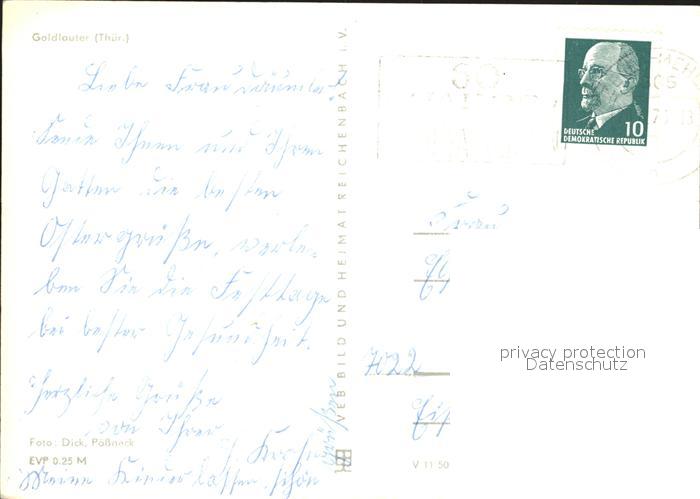 Goldlauter (Thür.)
Liebe Frau
Sende Ihnen und Ihrem
Gatten die besten
Ostergrüße, verle-
ben Sie die Festtage
bei bester Gesundheit.
Herzliche Grüße
von Ihrer
Meine Kinder lassen schön
grüßen
Foto: Dick, Pößneck
EVP 0.25 M
VEB BILD UND HEIMAT REICHENBACH I. V.
DEUTSCHE
DEMOKRATISCHE REPUBLIK
10
Frau
privacy protection
Datenschutz
V 11 50